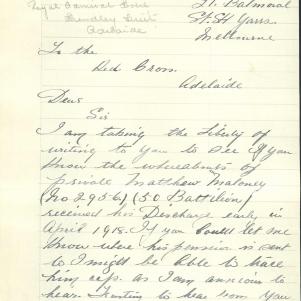 Adelaide
21 Balmoral
St. St Yarra
Melbourne
To the
Red Cross
Adelaide
Dear
Sir
I am taking the Liberty of
writing to you to see if you
know the whereabouts of
private Matthew Maloney
(No 2956) (50 Battilion)
received his Discharge early in
April 1918. If you could let me
know were his pension is sent
to I might be able to trace
him up. as I am anxious to
hear. Trusting to hear from you